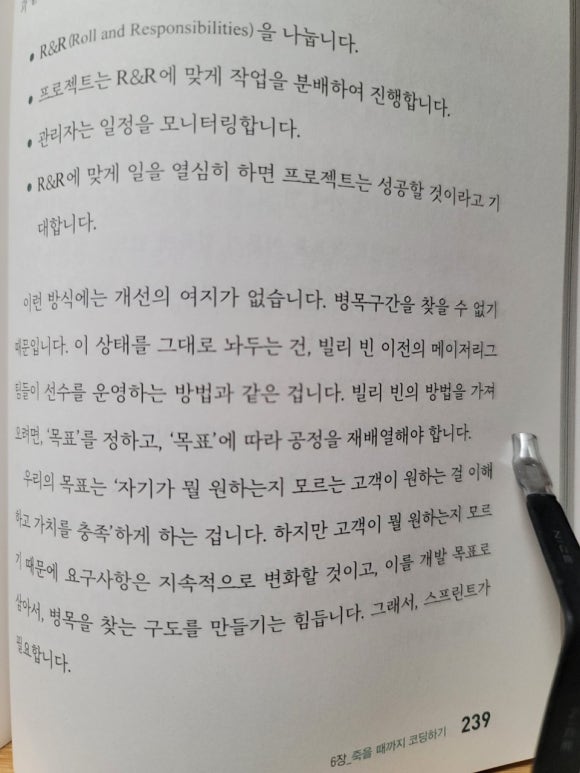 • R&R(Roll and Responsibilities)을 나눕니다.
• 프로젝트는 R&R에 맞게 작업을 분배하여 진행합니다.
• 관리자는 일정을 모니터링합니다.
• R&R에 맞게 일을 열심히 하면 프로젝트는 성공할 것이라고 기
대합니다.
이런 방식에는 개선의 여지가 없습니다. 병목구간을 찾을 수 없기
때문입니다. 이 상태를 그대로 놔두는 건, 빌리 빈 이전의 메이저리그
팀들이 선수를 운영하는 방법과 같은 겁니다. 빌리 빈의 방법을 가져
오려면, ‘목표’를 정하고, ‘목표’에 따라 공정을 재배열해야 합니다.
우리의 목표는 ‘자기가 뭘 원하는지 모르는 고객이 원하는 걸 이해
하고 가치를 충족’하게 하는 겁니다. 하지만 고객이 뭘 원하는지 모르
기 때문에 요구사항은 지속적으로 변화할 것이고, 이를 개발 목표로
삼아서, 병목을 찾는 구도를 만들기는 힘듭니다. 그래서, 스프린트가
필요합니다.
6장_죽을 때까지 코딩하기 239